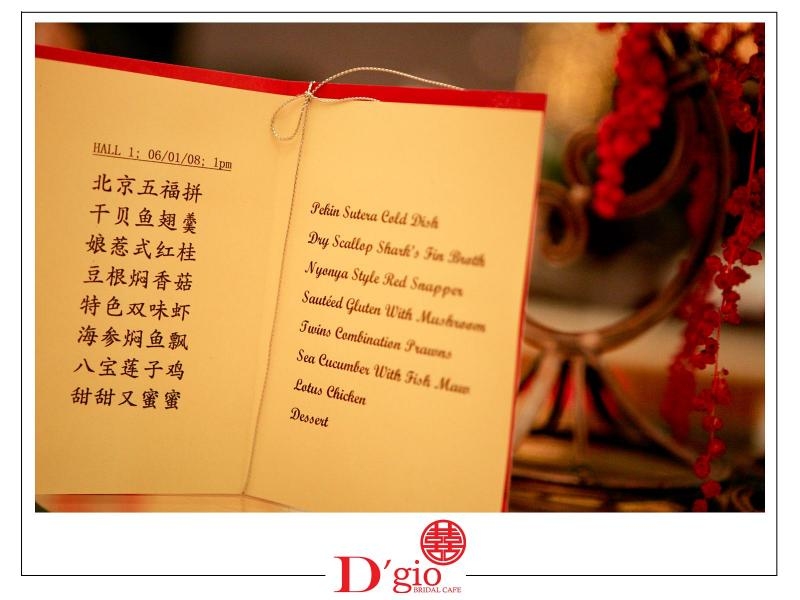 HALL 1; 06/01/08; 1pm
北京五福拼
干贝鱼翅羹
娘惹式红桂
豆根焖香菇
特色双味虾
海参焖鱼飘
八宝莲子鸡
甜甜又蜜蜜
Pekin Sutera Cold Dish
Dry Scallop Shark's Fin Broth
Nyonya Style Red Snapper
Sautéed Gluten With Mushroom
Twins Combination Prawns
Sea Cucumber With Fish Maw
Lotus Chicken
Dessert
囍
D'gio
BRIDAL CAFE